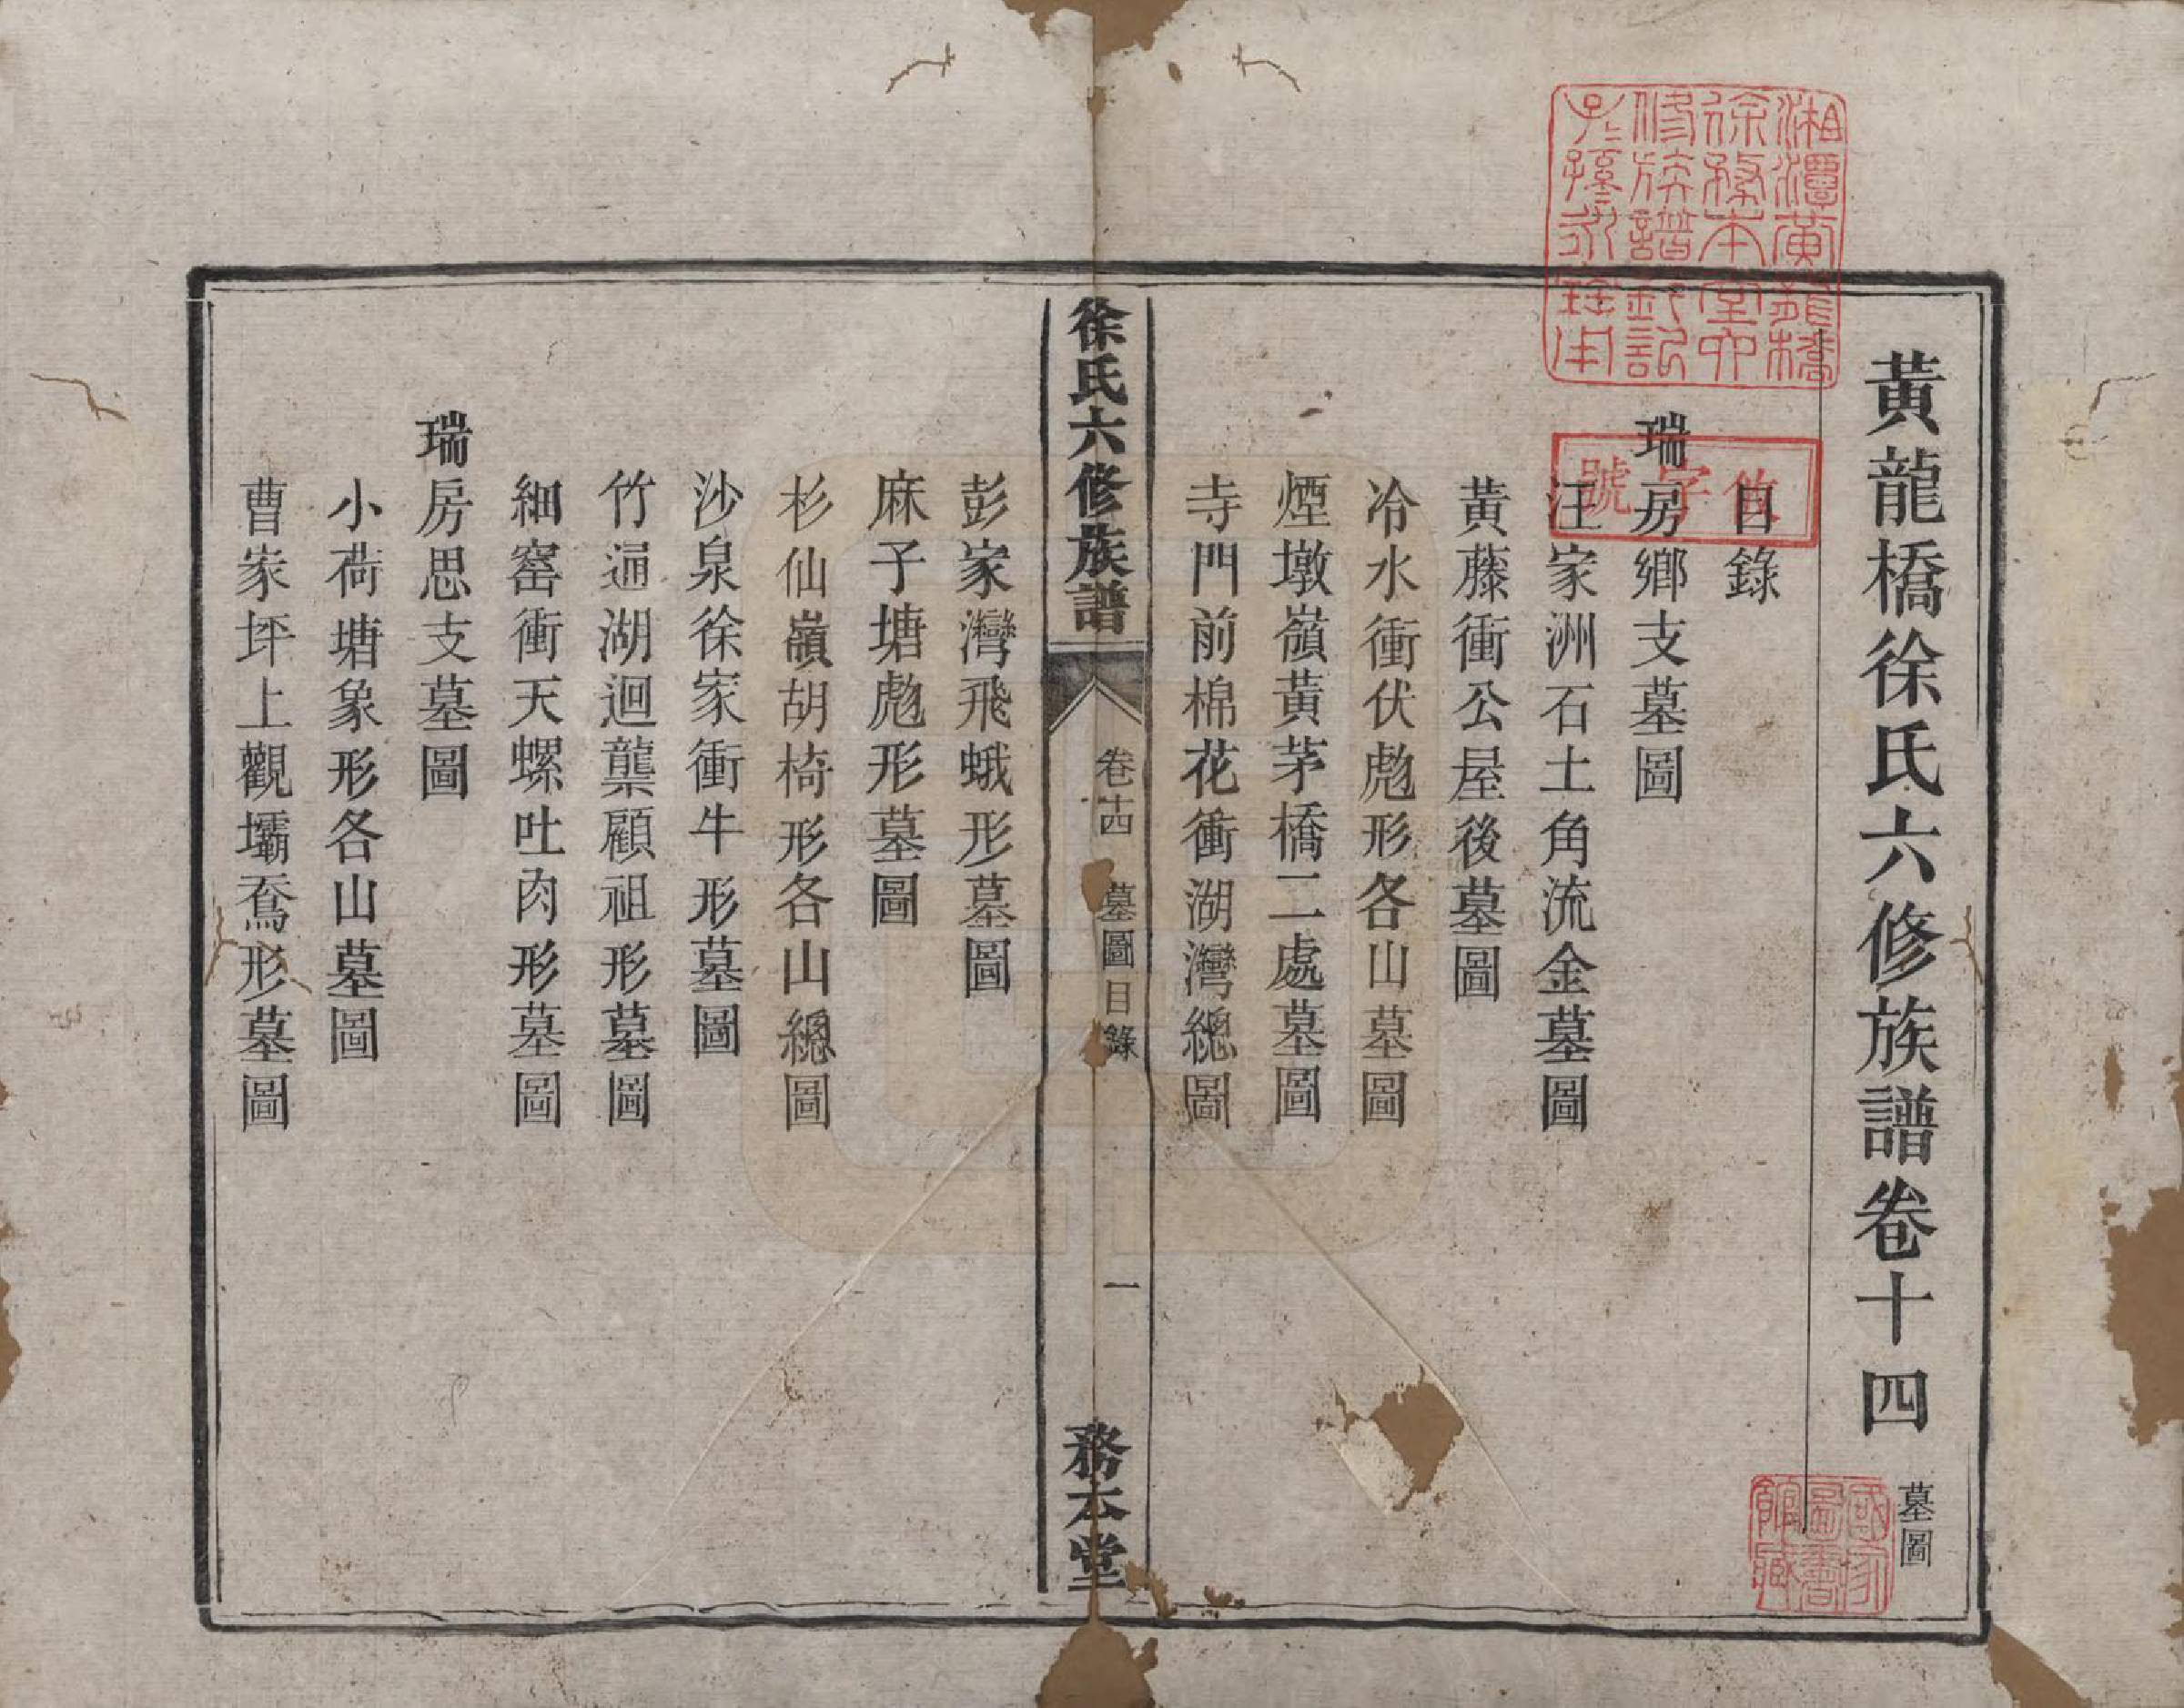 黃龍橋徐氏六修族譜卷十四 墓圖
目錄
瑞房鄉支墓圖
汪家洲石土角流金墓圖
黃藤衝公屋後墓圖
冷水衝伏彪形各山墓圖
煙墩嶺黃茅橋二處墓圖
寺門前棉花衝湖灣總圖
徐氏六修族譜 卷十四 墓圖目錄 一 務本堂
彭家灣飛蛾形墓圖
麻子塘彪形墓圖
杉仙嶺胡椅形各山總圖
沙泉徐家衝牛形墓圖
竹逼湖迴龍顧祖形墓圖
細窰衝天螺吐肉形墓圖
瑞房思支墓圖
小荷塘象形各山墓圖
曹家坪上觀壩形墓圖
湘潭黃龍橋
徐務本堂六
修族譜鈐記
子孫永寶用
字號
國家圖書館藏